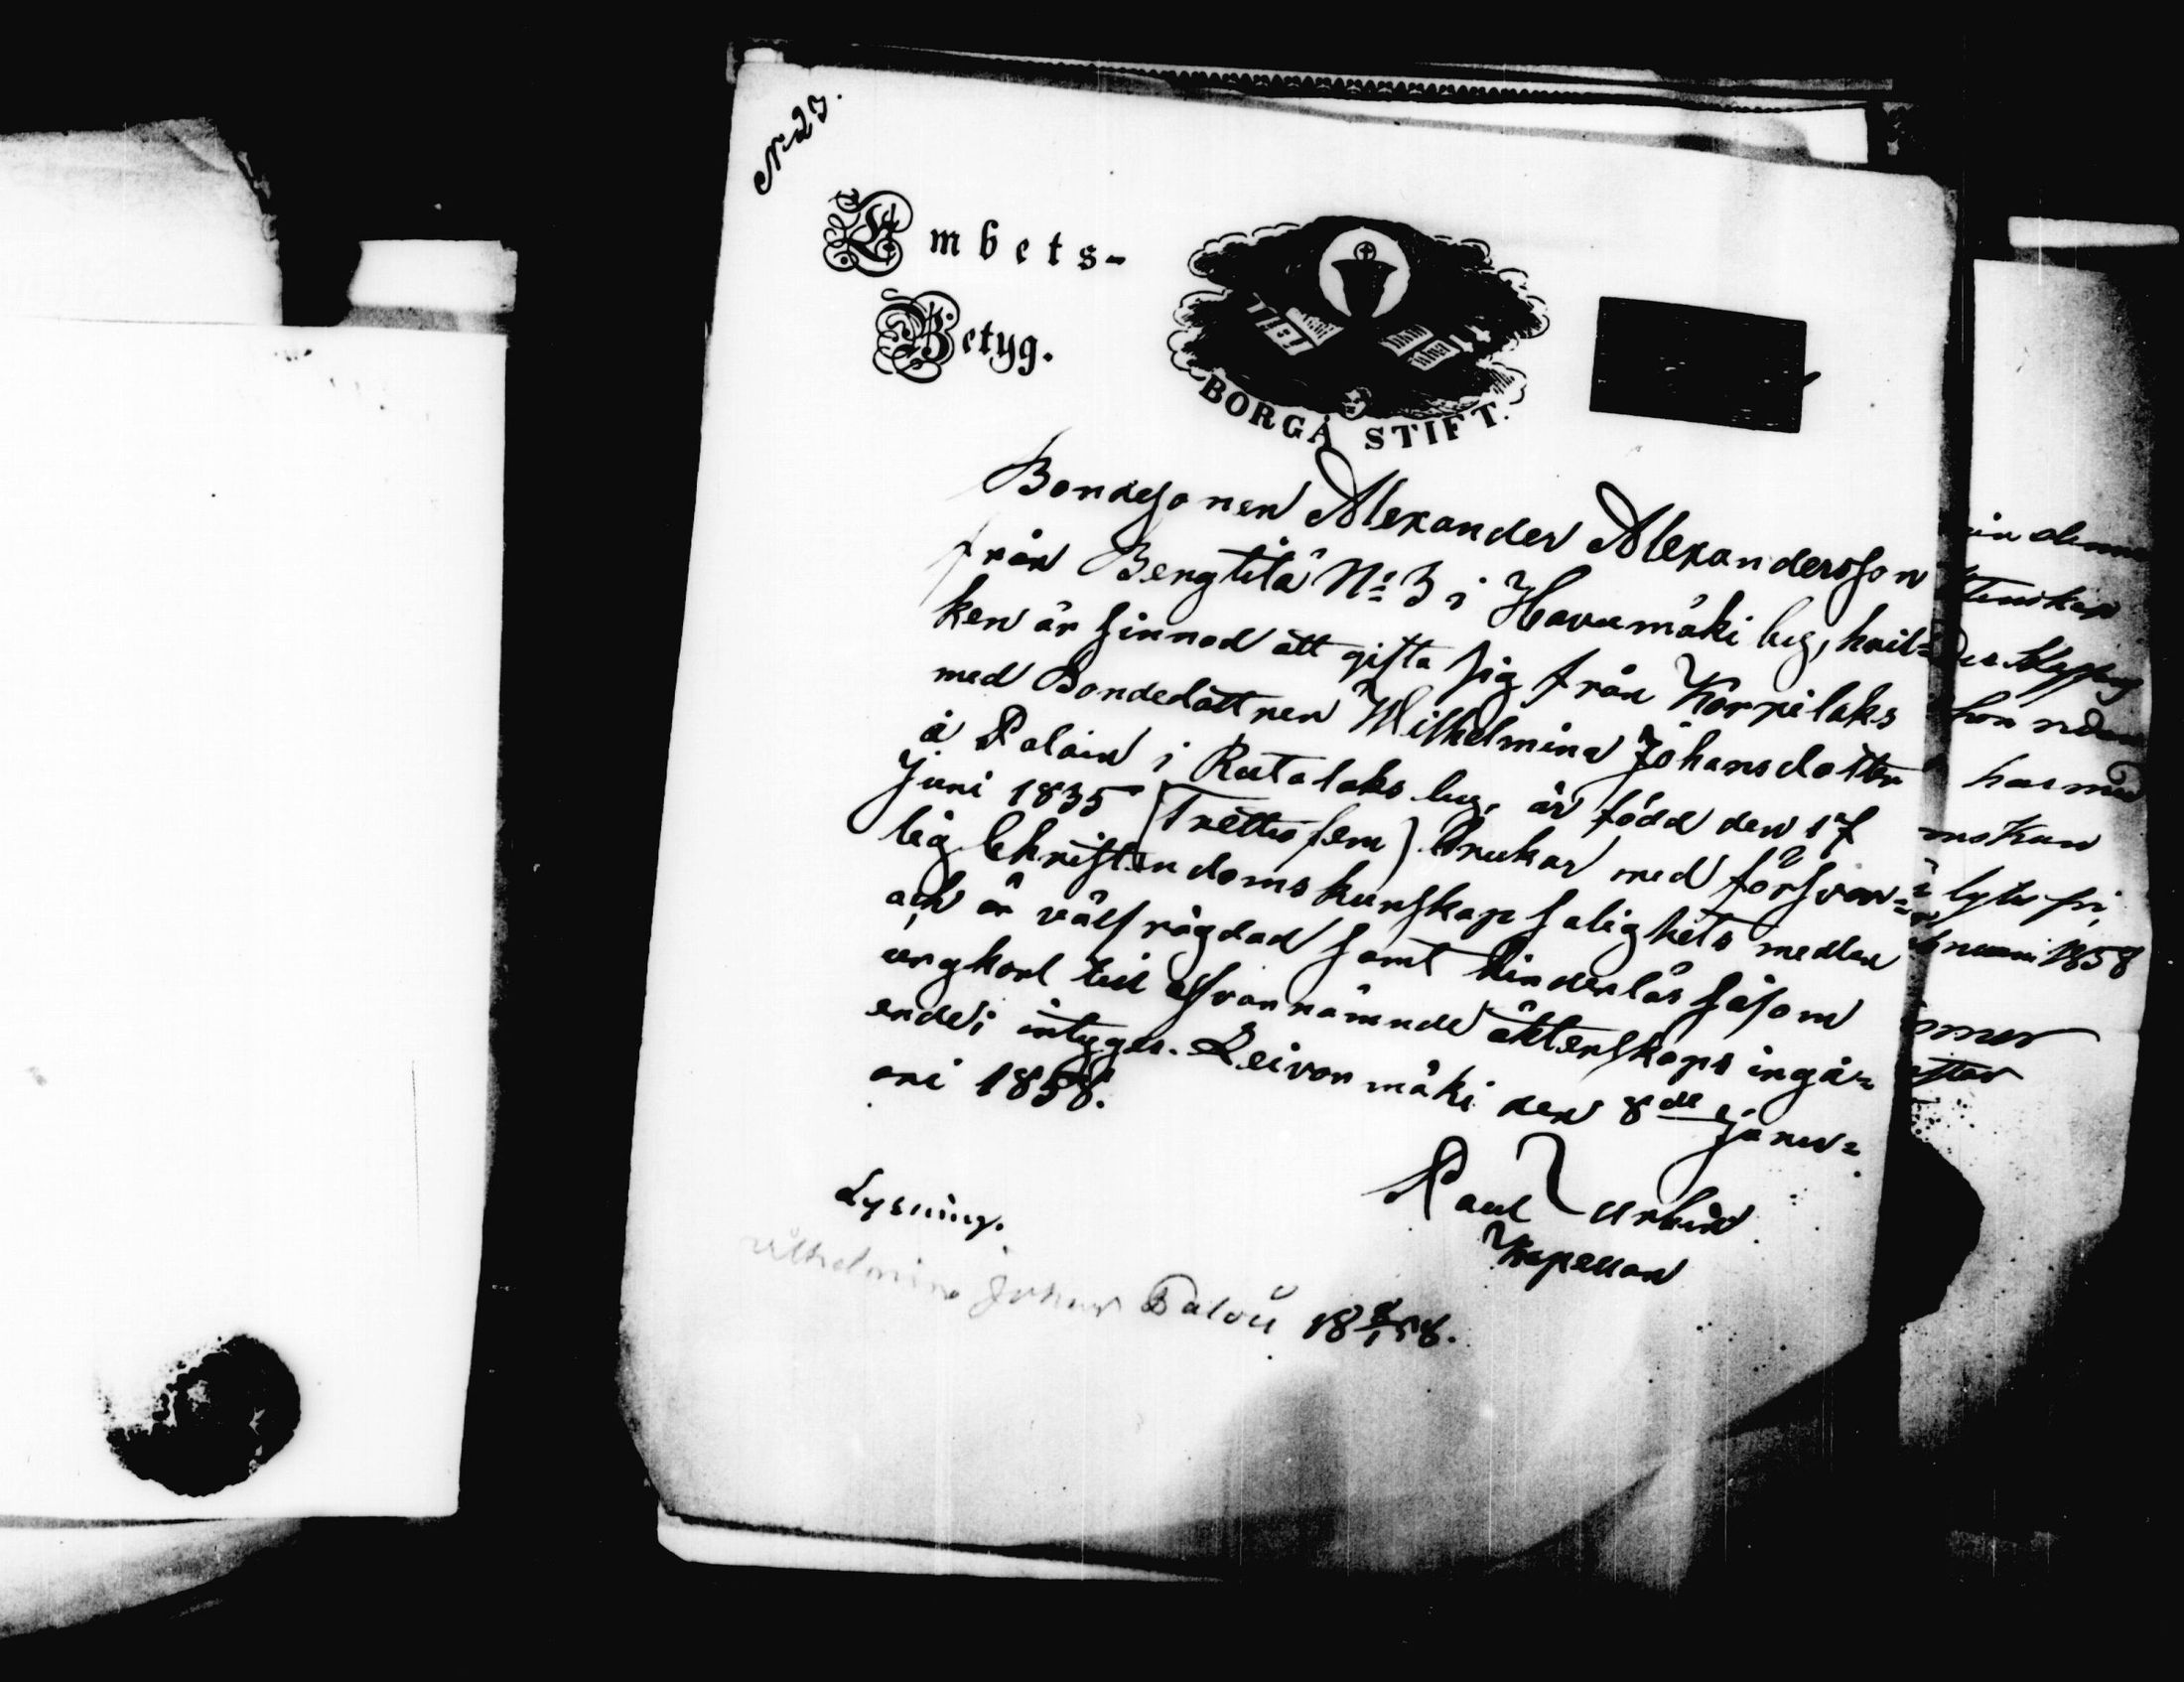 N 23.
Embets-
Betyg.
BORGÅ STIFT.
Bondesonen Alexander Alexandersson
från Bengtilä No 3 i Havumäki by, hvil=
ken är sinnad att gifta sig från Korpilaks
med Bondedottren Wilhelmina Johansdotter
å Paloin i Rutalaks by, är född den 17
Juni 1835 (Trettiofem) brukar med försvar=
lig Christendomskunskap salighets medlen
och är välfrägdad samt hinderlös såsom
ungkarl till ofvannämnde äktenskaps ingå=
ende; intygar. Leivonmäki den 8de Janu=
ari 1858.
Paul
Kapellan
Lysning.
Vilhelmina Johans Paloii 18 58.
lyte fri,
1858